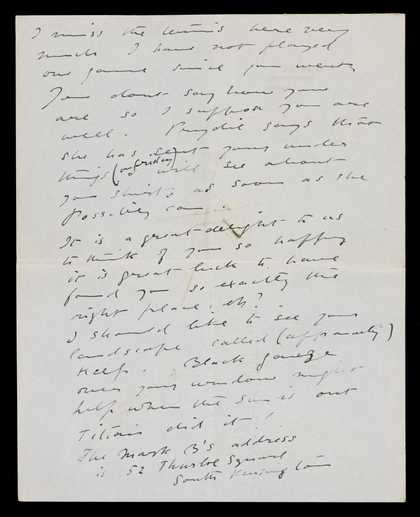 I miss the tennis here very
much I have not played
one game since you went.
You dont say how you
are so I suppose you are
well. says that
she has sent your under
things (on friday) & will see about
your shirts as soon as she
possibly can
It is a great delight to us
to think of you so happy
it is great luck to have
found you so exactly the
right place, eh?
I should like to see your
landscape called (apparently)
Help. Black gauze
over your windows might
help when the sun is out
Titian did it!
The Mark B's address
is 52 Thurloe Square
South Kensington